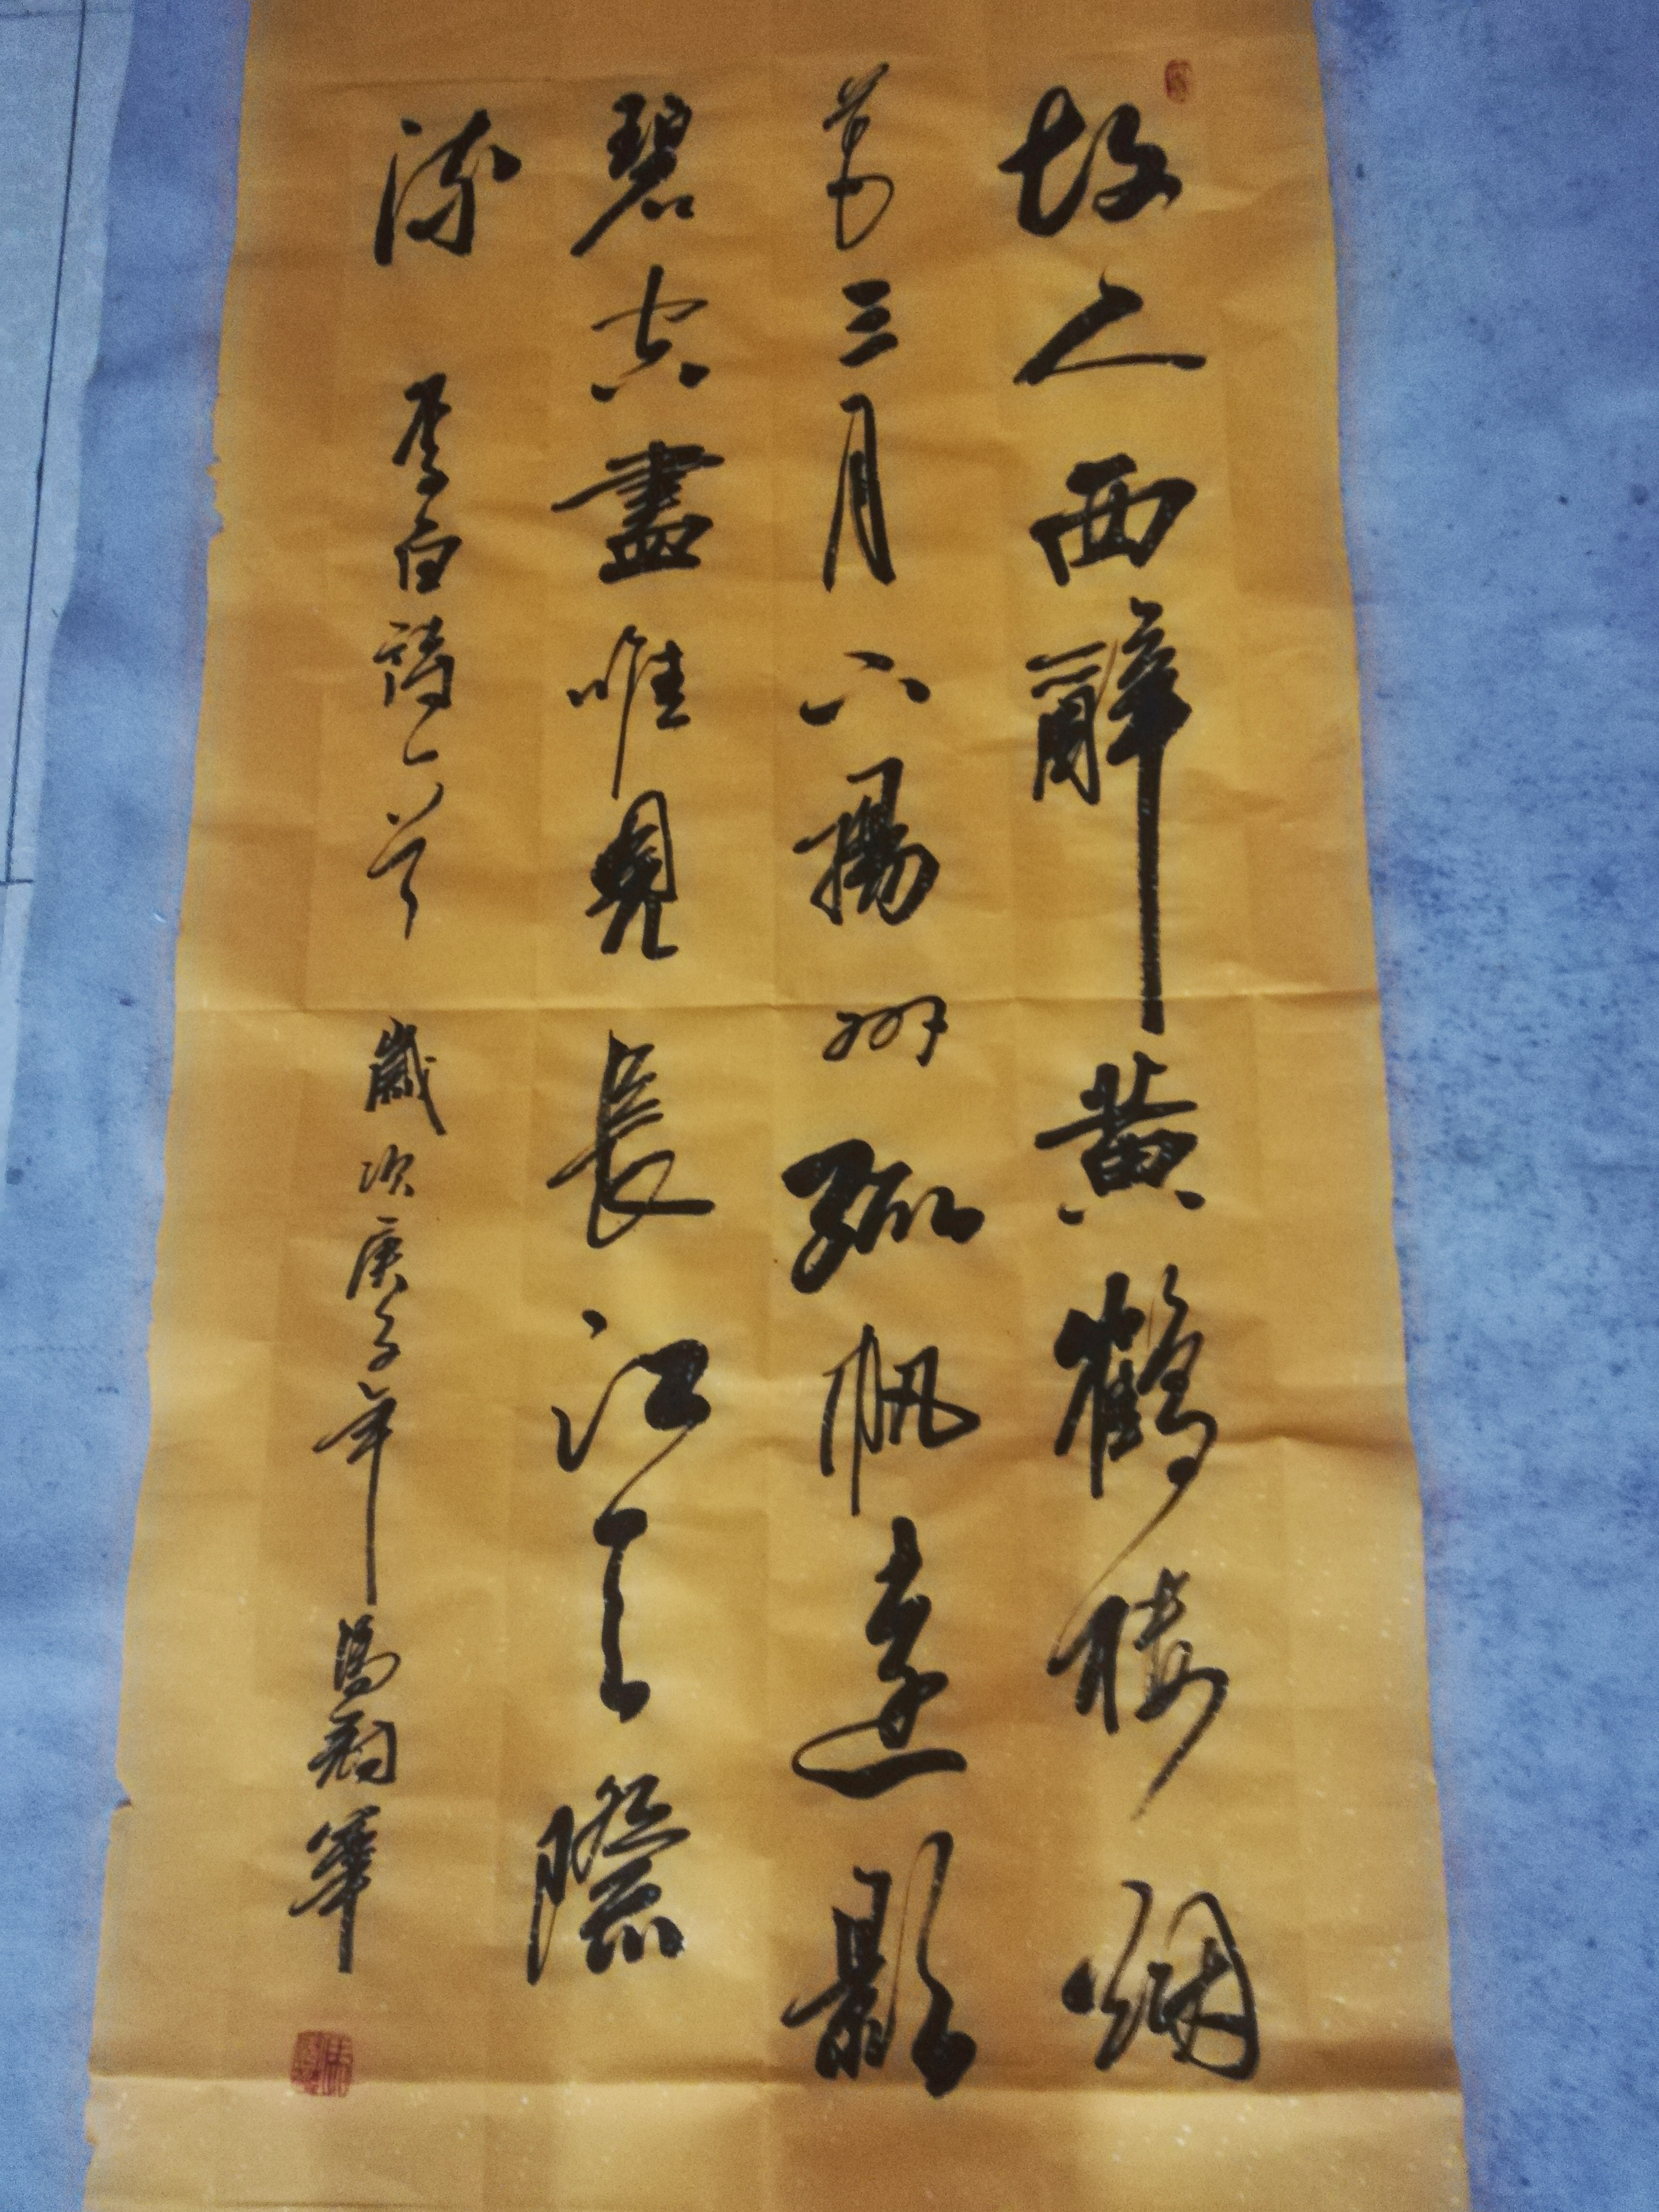 故人西辭黄鶴楼烟
花三月下揚州孤帆遠影
碧空盡唯見長江天際
流 李白詩一首 歲次庚子年 馮 華